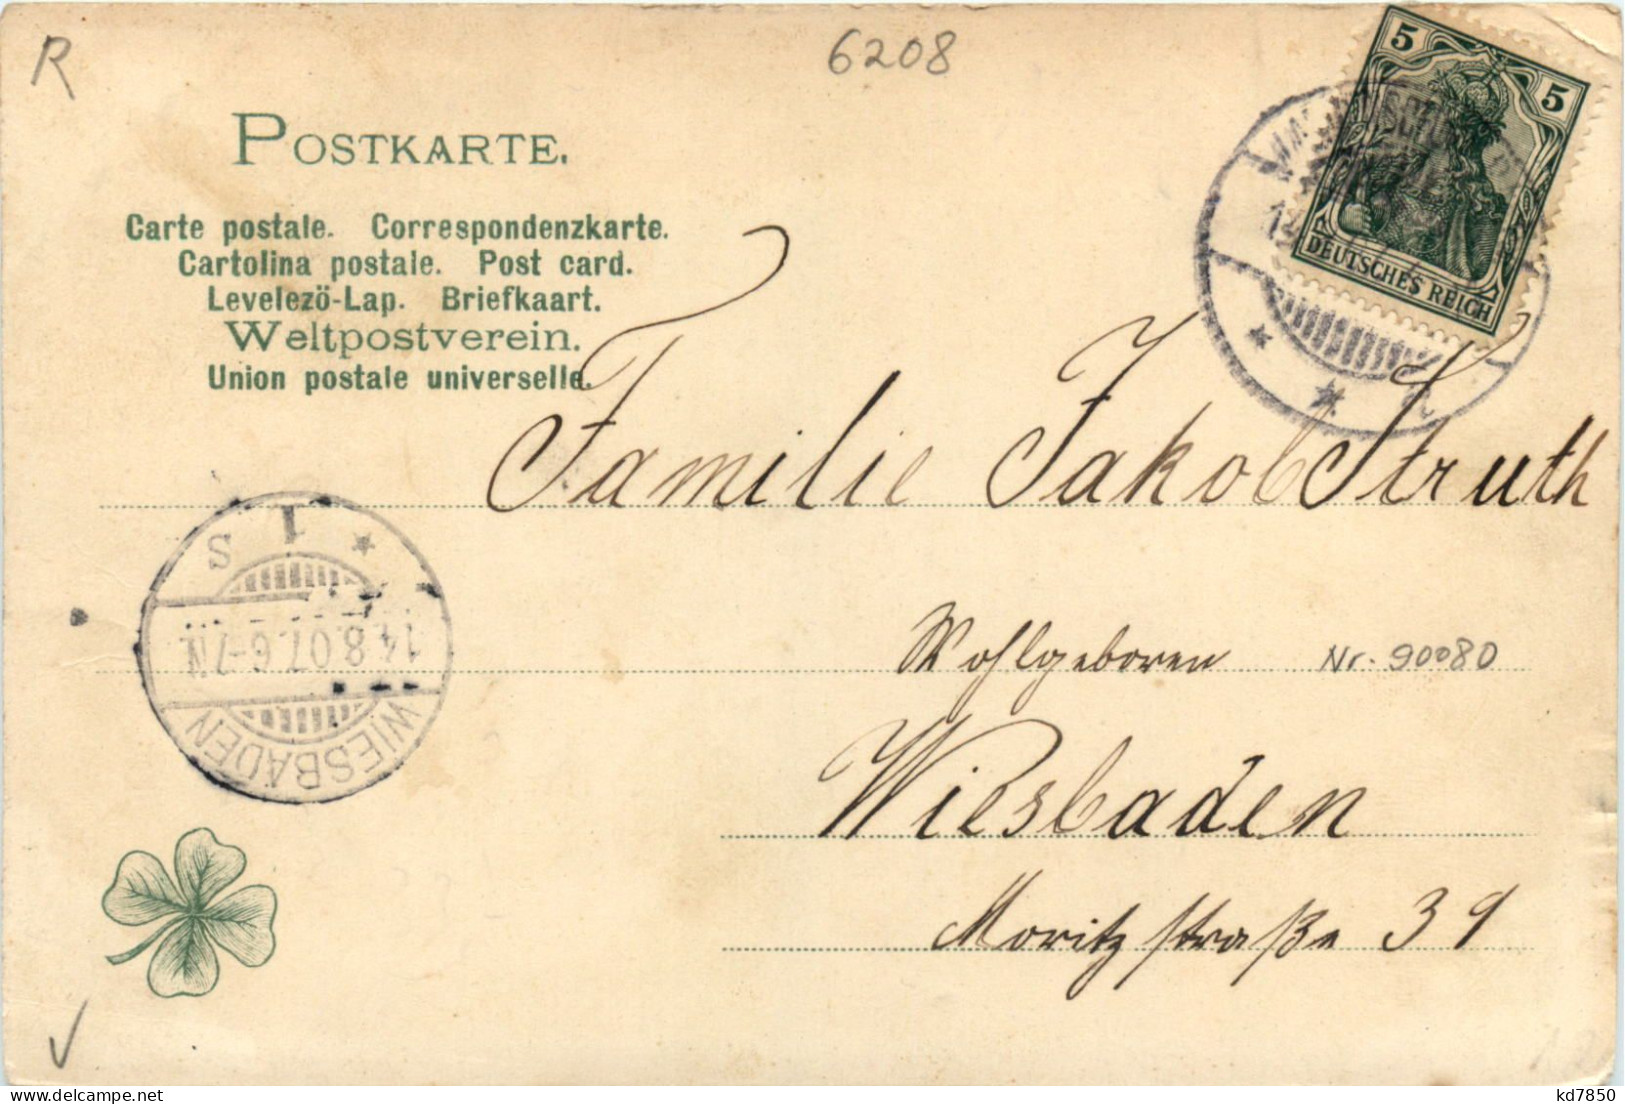 R
6208
POSTKARTE.
Carte postale. Correspondenzkarte.
Cartolina postale. Post card.
Levelezö-Lap. Briefkaart.
Weltpostverein.
Union postale universelle.
5 5
DEUTSCHES REICH
Familie Jakob Struth
Wohlgeboren Nr. 90080
Wiesbaden
Moritzstraße 39
WIESBADEN
14.8.07. 6-7 N.
* 1 S
kd7850